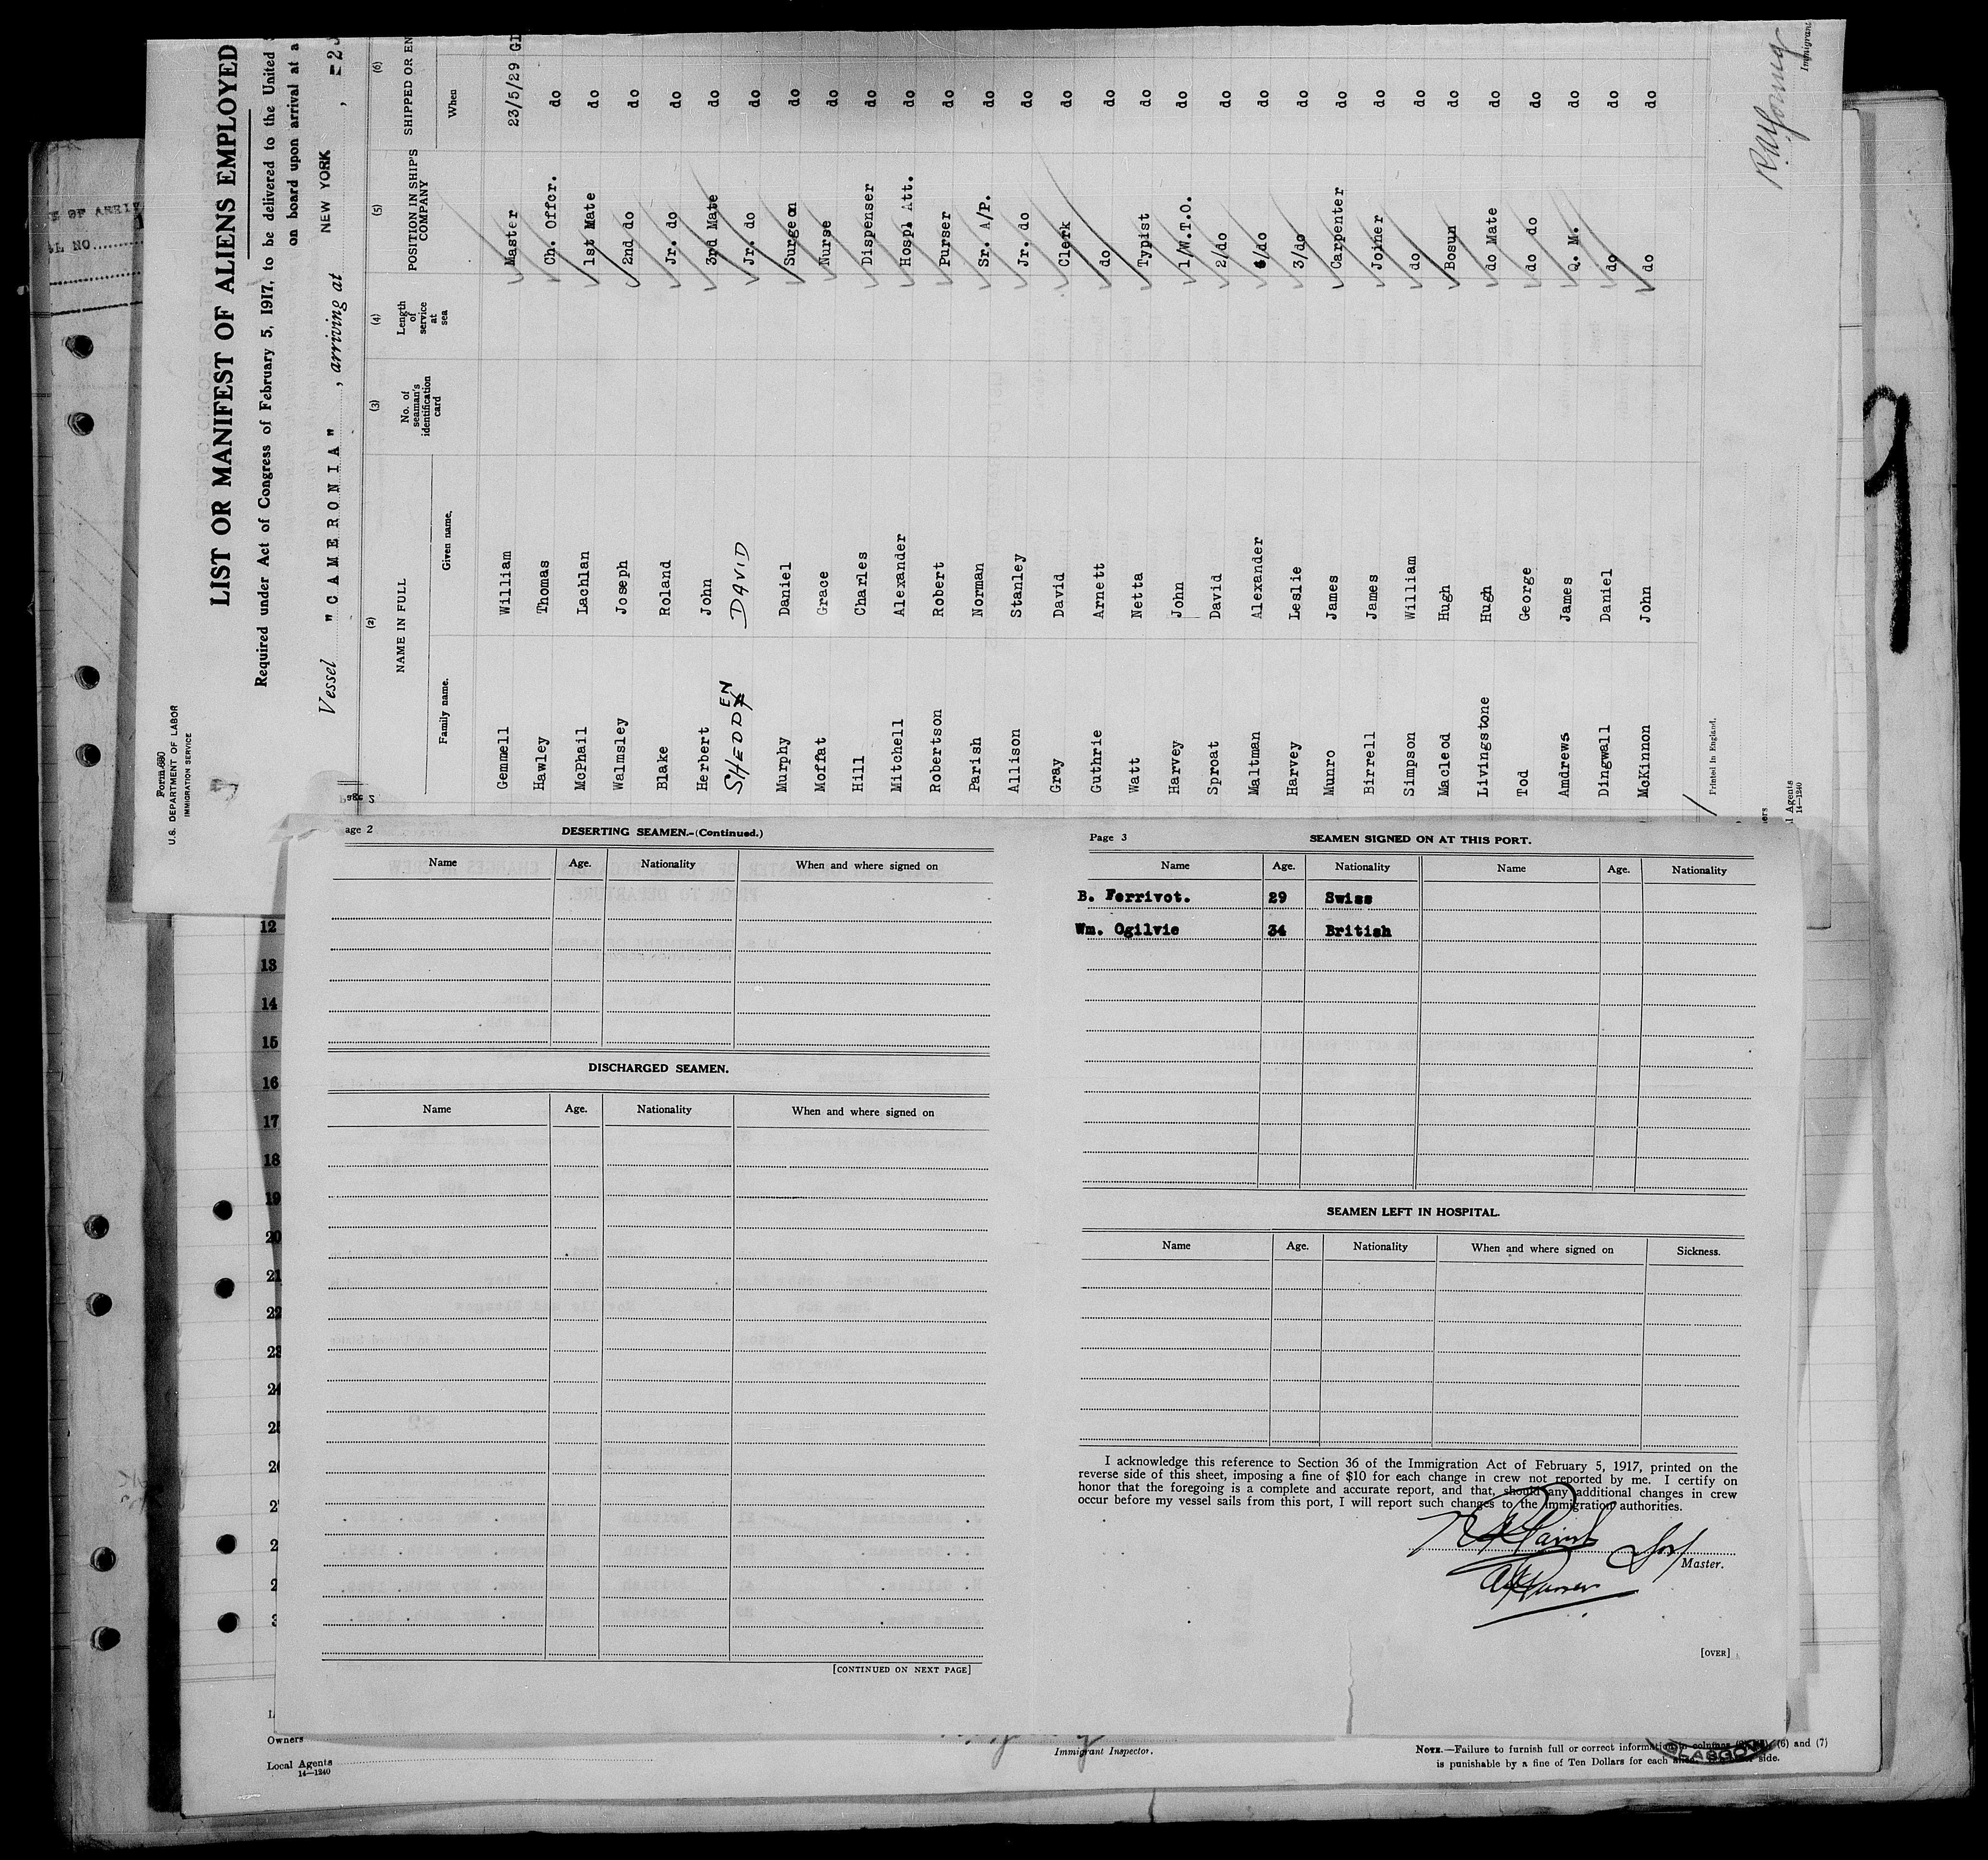 Form 680
U.S. DEPARTMENT OF LABOR
IMMIGRATION SERVICE
LIST OR MANIFEST OF ALIENS EMPLOYED
Required under Act of Congress of February 5, 1917, to be delivered to the United
on board upon arrival at a
Vessel "CAMERONIA", arriving at NEW YORK,
(2) (3) (4) (5) (6)
NAME IN FULL No. of seaman's identification card Length of service at sea POSITION IN SHIP'S COMPANY SHIPPED OR EN
Family name. Given name. When
Gemmell William Master 23/5/29 Gl
Hawley Thomas Ch. Offcr. do
McPhail Lachlan 1st Mate do
Walmsley Joseph 2nd do do
Blake Roland Jr. do do
Herbert John 3rd Mate do
SHEDDEN DAVID Jr. do do
Murphy Daniel Surgeon do
Moffat Grace Nurse do
Hill Charles Dispenser do
Mitchell Alexander Hospl Att. do
Robertson Robert Purser do
Parish Norman Sr. A/P. do
Allison Stanley Jr. do do
Gray David Clerk do
Guthrie Arnett do do
Watt Netta Typist do
Harvey John 1/W.T.O. do
Sproat David 2/do do
Maltman Alexander /do do
Harvey Leslie 3/do do
Munro James Carpenter do
Birrell James Joiner do
Simpson William do do
Macleod Hugh Bosun do
Livingstone Hugh do Mate do
Tod George do do do
Andrews James Q. M. do
Dingwall Daniel do do
McKinnon John do do
Printed in England.
Agents
14—1240
Immigrant
Page 2
age 2
DESERTING SEAMEN.-(Continued.)
Name Age. Nationality When and where signed on
DISCHARGED SEAMEN.
Name Age. Nationality When and where signed on
[CONTINUED ON NEXT PAGE]
Page 3
SEAMEN SIGNED ON AT THIS PORT.
Name Age. Nationality Name Age. Nationality
B. Ferrivot. 29 Swiss
Wm. Ogilvie 34 British
SEAMEN LEFT IN HOSPITAL.
Name Age. Nationality When and where signed on Sickness.
I acknowledge this reference to Section 36 of the Immigration Act of February 5, 1917, printed on the
reverse side of this sheet, imposing a fine of $10 for each change in crew not reported by me. I certify on
honor that the foregoing is a complete and accurate report, and that, should any additional changes in crew
occur before my vessel sails from this port, I will report such changes to the immigration authorities.
Master.
[OVER]
12
13
14
15
16
17
18
19
20
21
22
23
24
Owners
Local Agents
14—1240
Immigrant Inspector.
NOTE.—Failure to furnish full or correct information in columns (6) and (7)
is punishable by a fine of Ten Dollars for each side.
GLASGOW
9